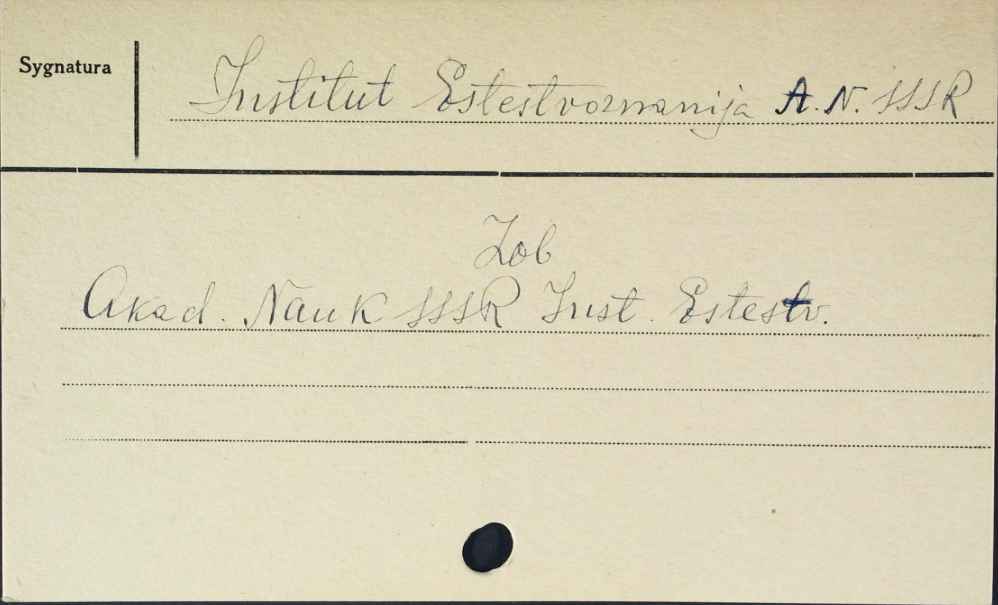 Sygnatura
Institut Estestvoznanija A.N. SSSR
Zob
Akad. Nauk SSSR Inst. Estestv.